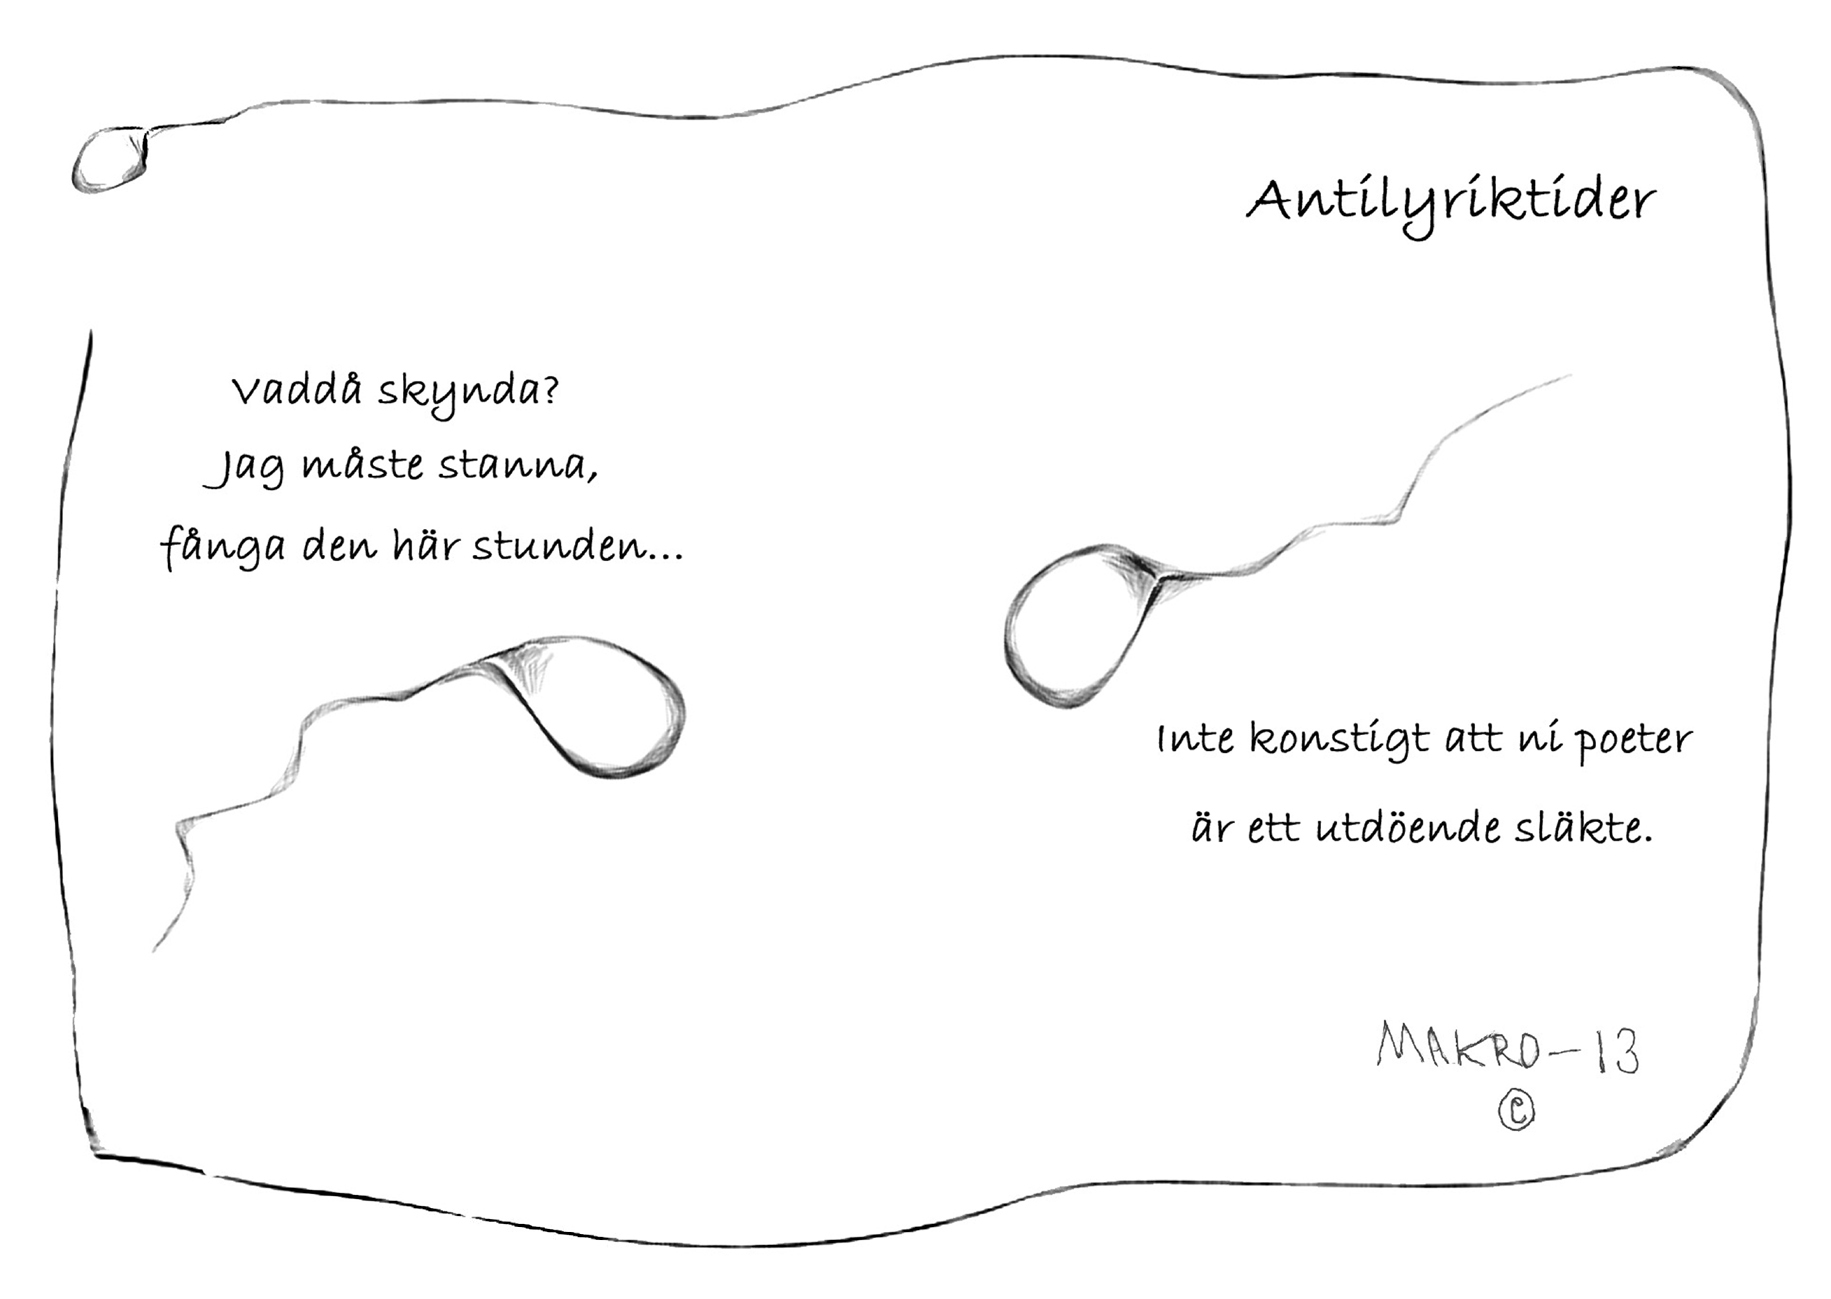 Antilyriktider
Vaddå skynda?
Jag måste stanna,
fånga den här stunden...
Inte konstigt att ni poeter
är ett utdöende släkte.
MAKRO-13
©